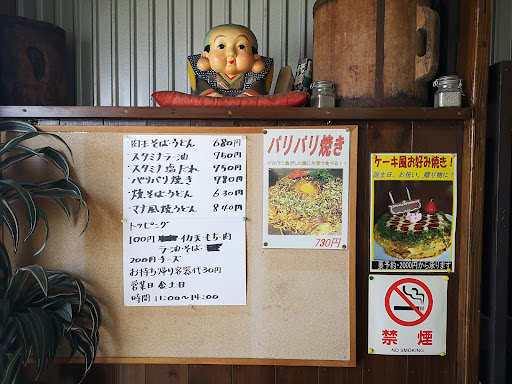 肉玉そばうどん 680円
スタミナラー油 750円
スタミナ塩だれ 750円
パリパリ焼き 780円
焼そば焼うどん 630円
マナ風焼うどん 840円
トッピング
100円 イカ天・もち・肉
ラー油・そば・
200円チーズ
お持ち帰り容器代30円
営業日 金土日
時間 11:00〜14:00
パリパリ焼き
730円
ケーキ風お好み焼き!
誕生日、お祝い、贈り物に!
要予約・2000円から承ります
禁煙
NO SMOKING